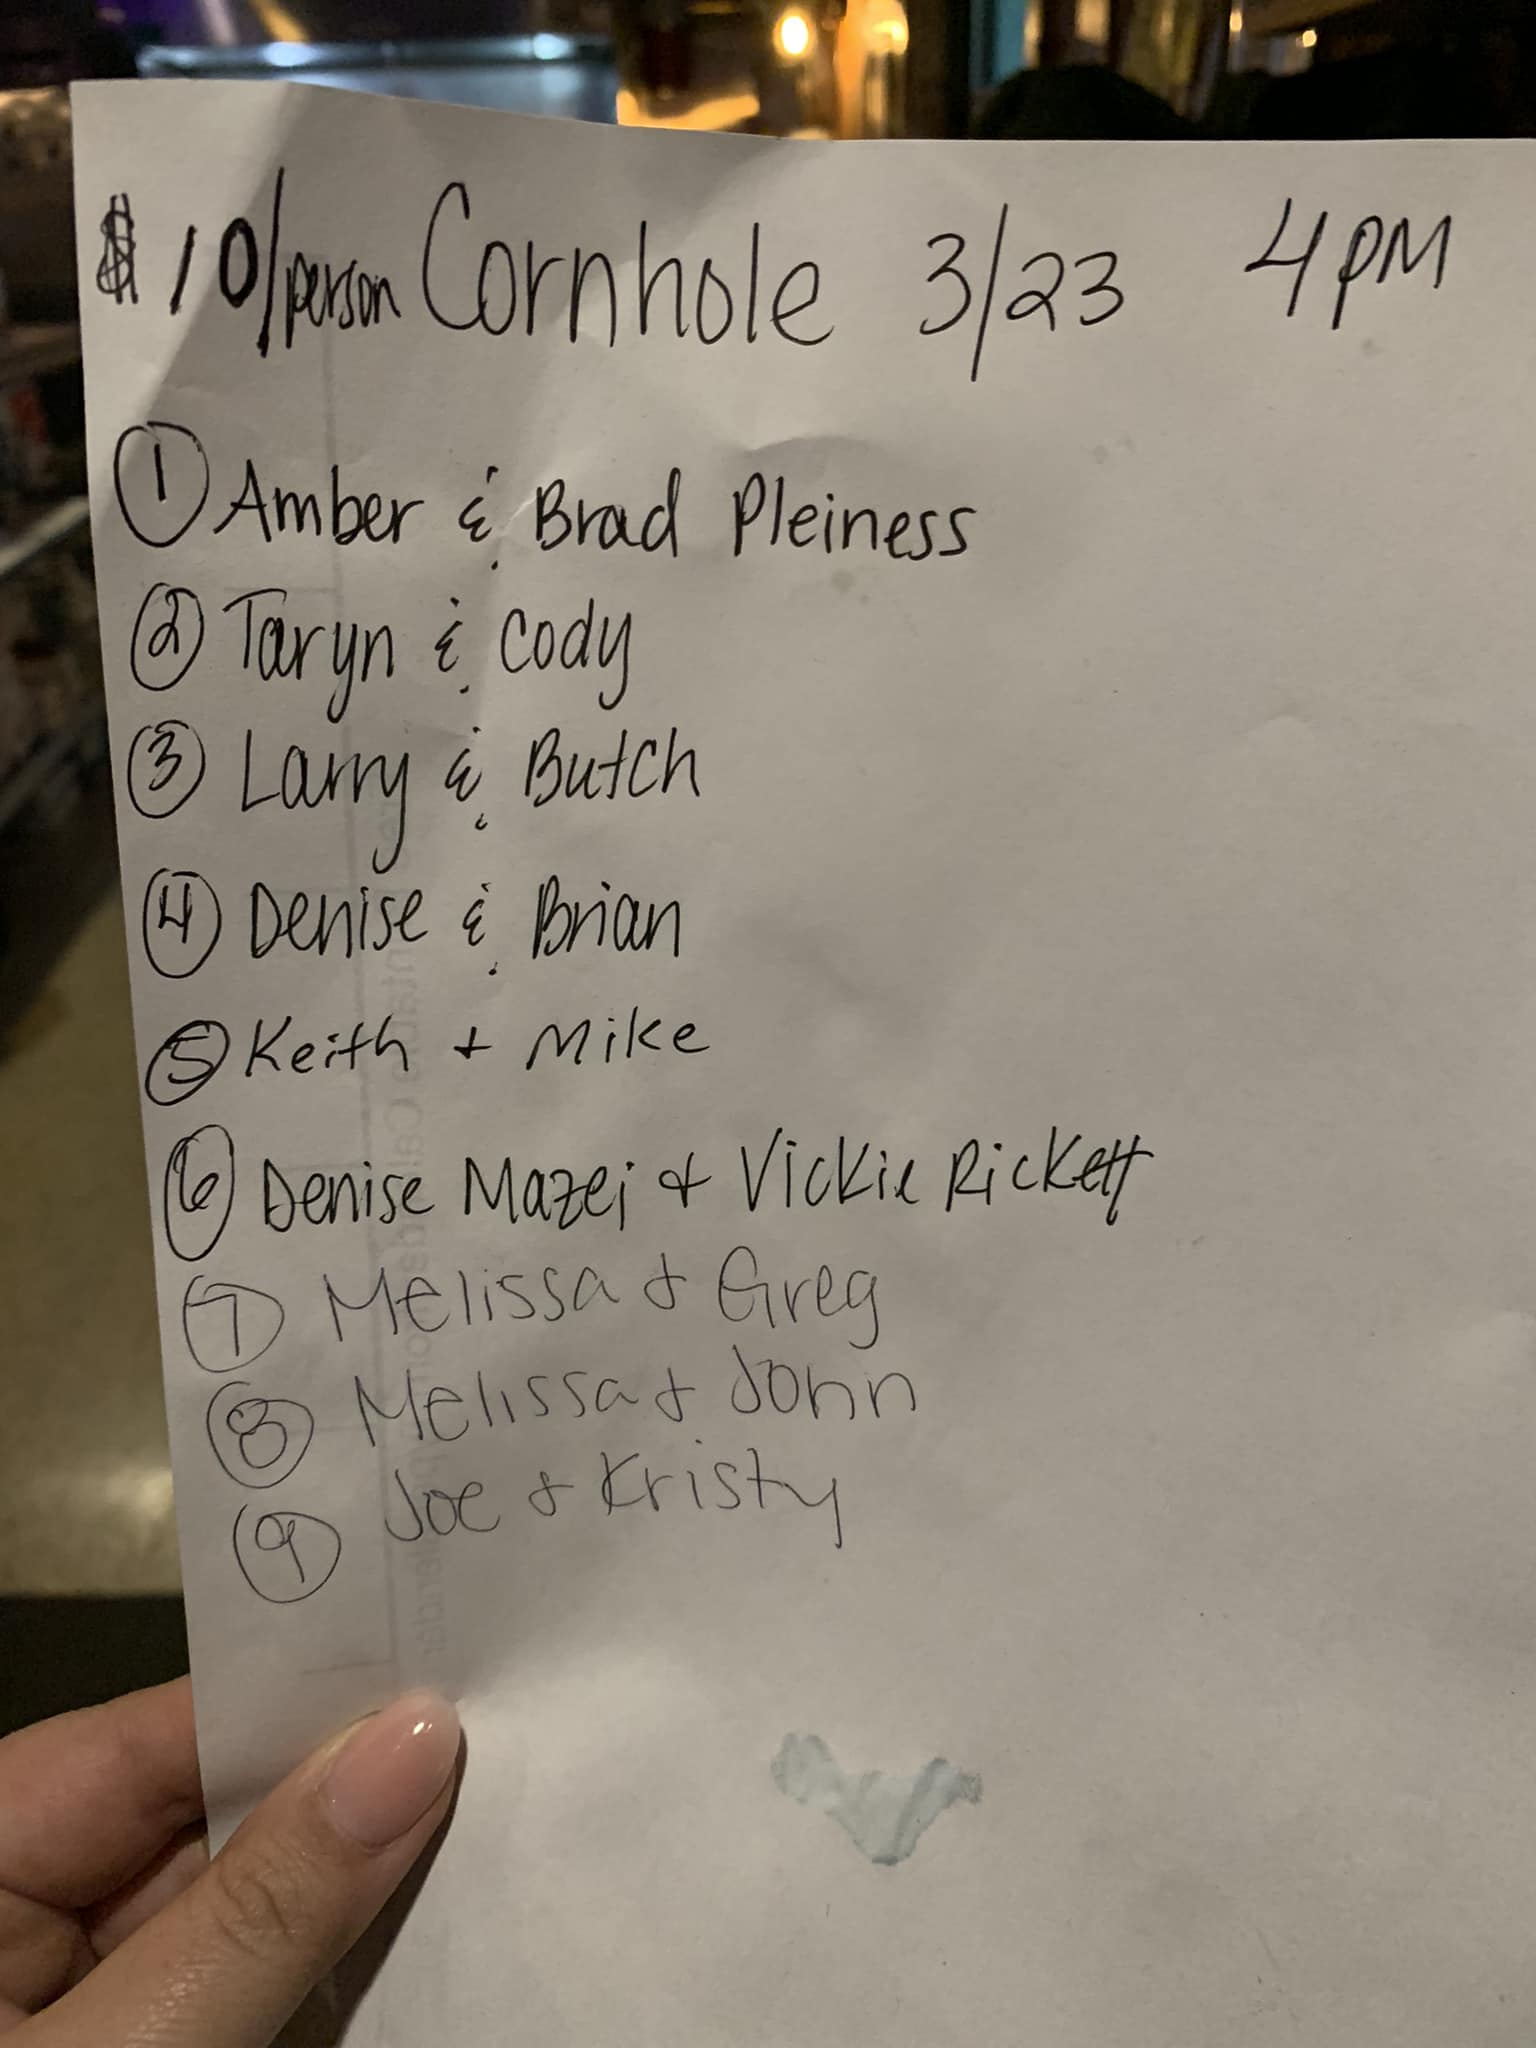 $10/person Cornhole 3/23 4PM
1 Amber & Brad Pleiness
2 Taryn & Cody
3 Larry & Butch
4 Denise & Brian
5 Keith + Mike
6 Denise Mazei & Vickie Rickett
7 Melissa & Greg
8 Melissa & John
9 Joe & Kristy